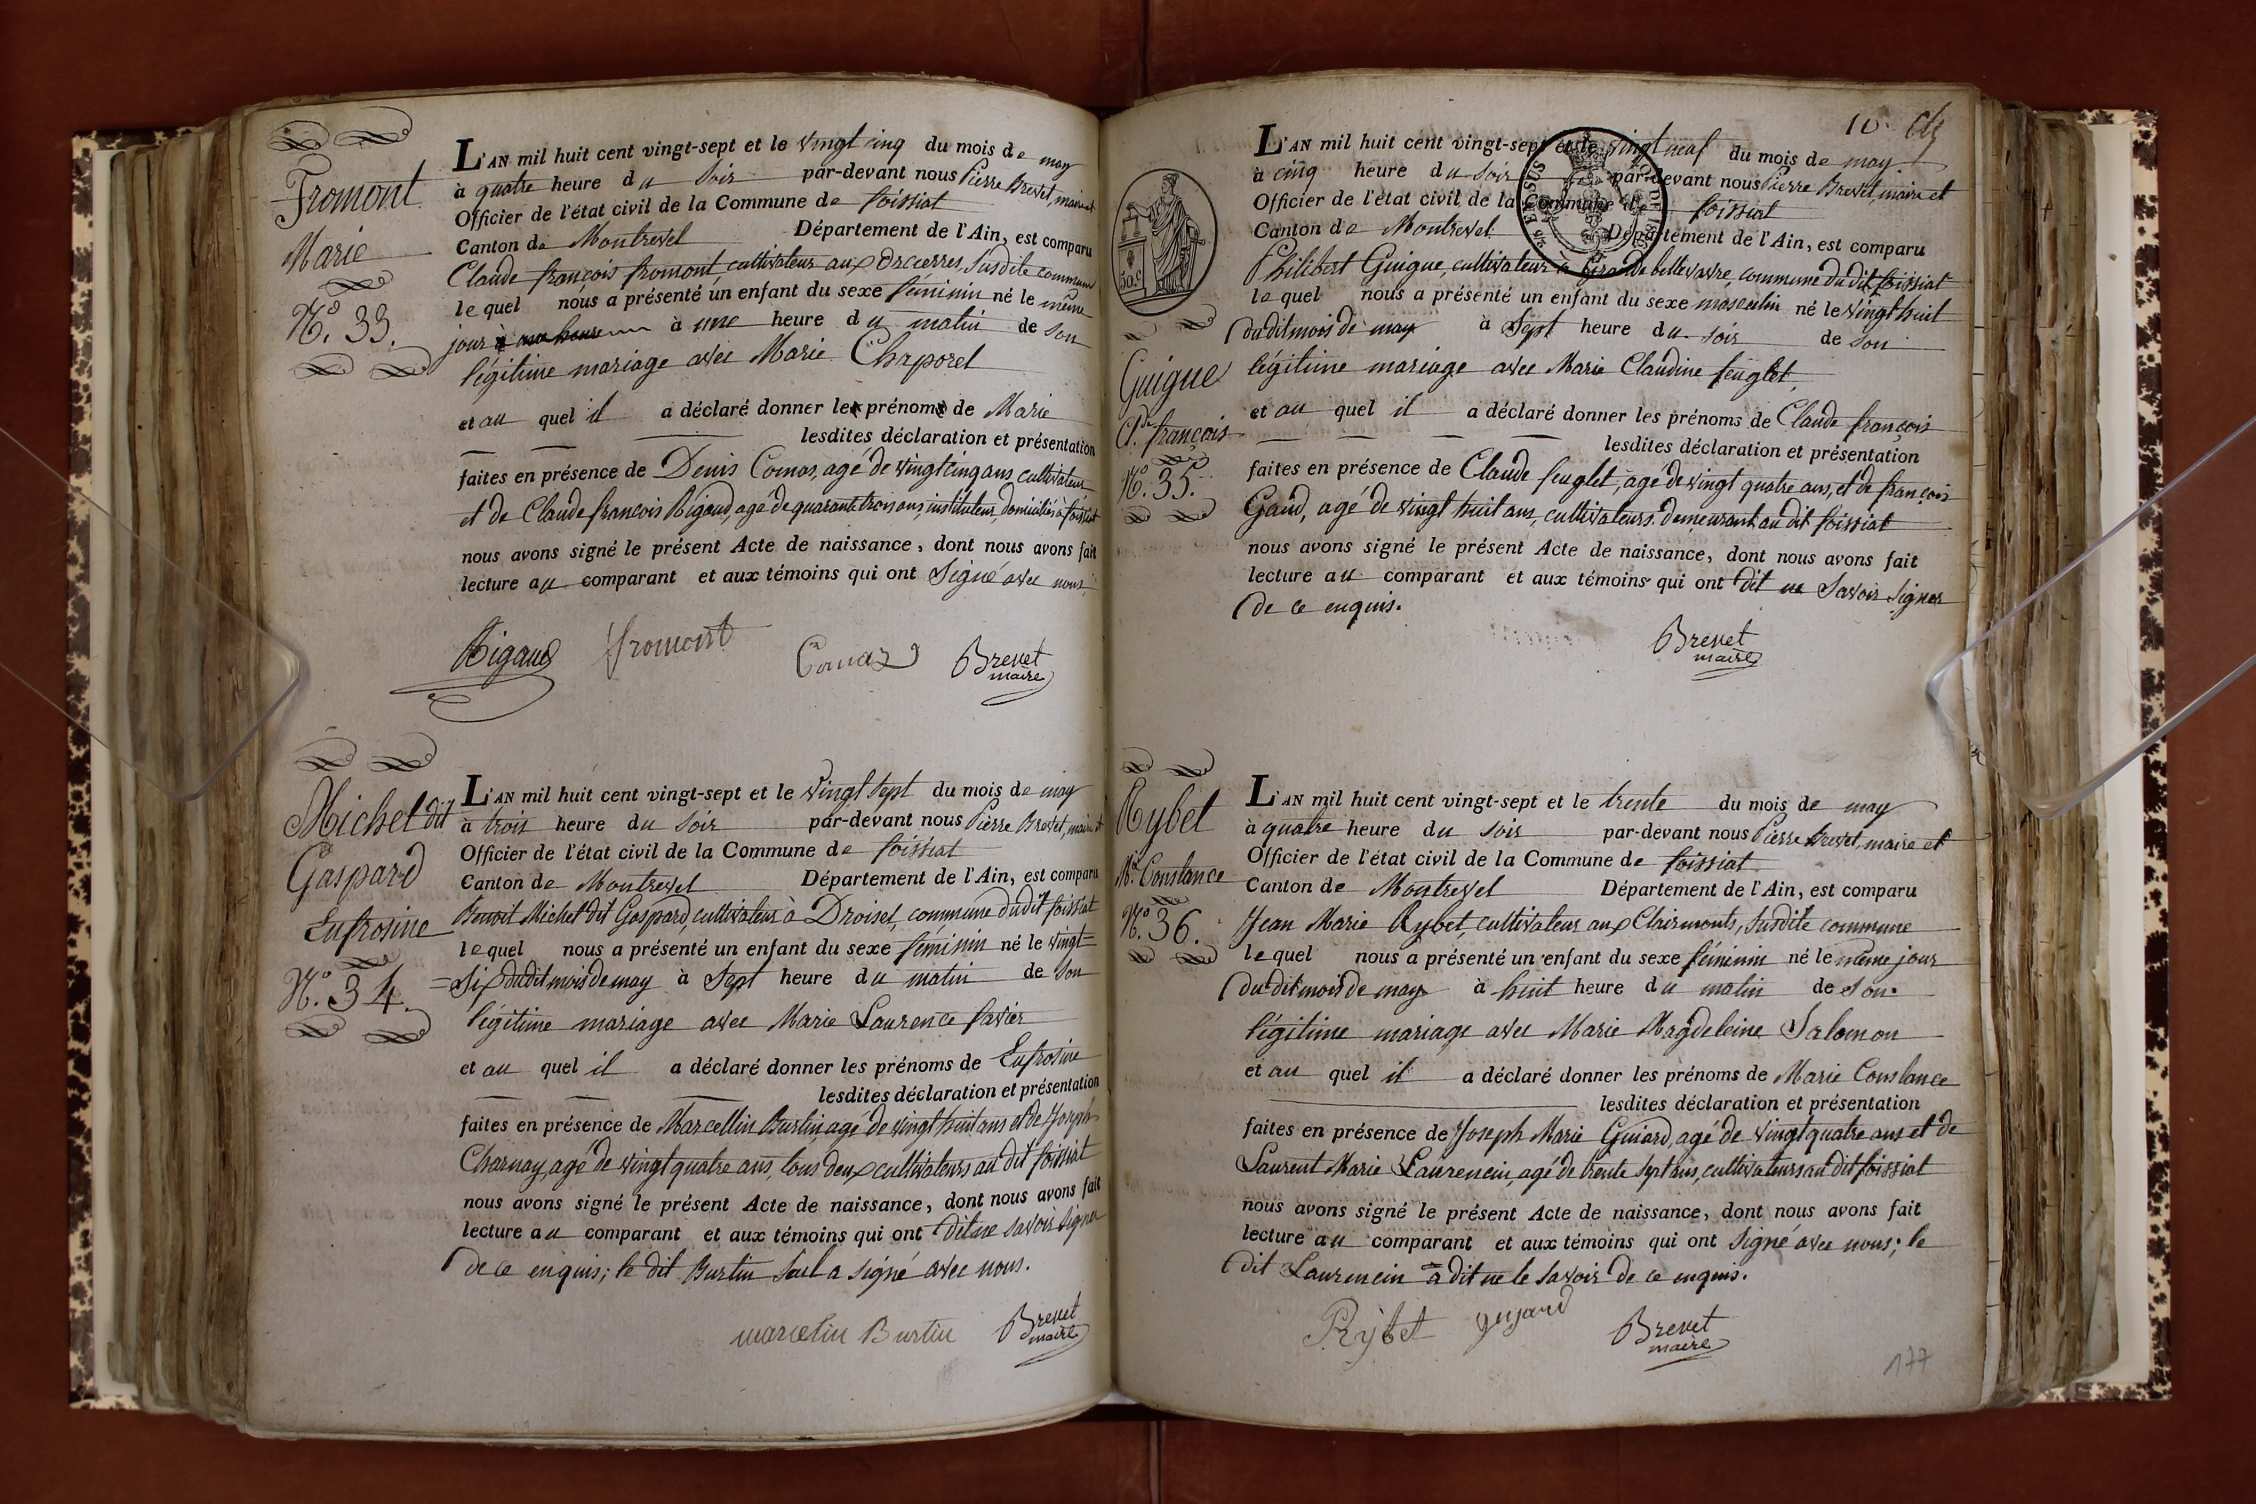 Fromont
Marie
N.° 33.
L'AN mil huit cent vingt-sept et le vingt cinq du mois de may
à quatre heure du soir par-devant nous Pierre Brevet, maire et
Officier de l'état civil de la Commune de foissiat
Canton de Montrevel Département de l'Ain, est comparu
Claude françois fromont cultivateur aux Orcierres, susdite commune
lequel nous a présenté un enfant du sexe féminin né le même
jour à une heure du matin de son
légitime mariage avec Marie Chaporel
et au quel il a déclaré donner le prénom de Marie
lesdites déclaration et présentation
faites en présence de Denis Comas, agé de vingt cinq ans, cultivateur
et de Claude françois Rigaud, agé de quarante trois ans, instituteur, domiciliés à foissiat
nous avons signé le présent Acte de naissance, dont nous avons fait
lecture au comparant et aux témoins qui ont signé avec nous.
Rigaud fromont Comas Brevet
maire
Michel dit
Gaspard
Eufrosine
N.° 34.
L'AN mil huit cent vingt-sept et le vingt sept du mois de may
à trois heure du soir par-devant nous Pierre Brevet, maire et
Officier de l'état civil de la Commune de foissiat
Canton de Montrevel Département de l'Ain, est comparu
Benoit Michel dit Gaspard, cultivateur à Droisel, commune dudit foissiat
lequel nous a présenté un enfant du sexe féminin né le vingt=
=six dudit mois de may à sept heure du matin de son
légitime mariage avec Marie Laurence favier
et au quel il a déclaré donner les prénoms de Eufrosine
lesdites déclaration et présentation
faites en présence de Marcellin Burtin, agé de vingt huit ans et de Joseph
Charnay, agé de vingt quatre ans, tous deux cultivateurs au dit foissiat
nous avons signé le présent Acte de naissance, dont nous avons fait
lecture au comparant et aux témoins qui ont dit ne savoir signer
de ce enquis; le dit Burtin seul a signé avec nous.
marcelin Burtin Brevet
maire
10.
50.C
Guigue
Cl.de françois
N.° 35.
L'AN mil huit cent vingt-sept et le vingt neuf du mois de may
à cinq heure du soir par-devant nous Pierre Brevet, maire et
Officier de l'état civil de la Commune de foissiat
Canton de Montrevel Département de l'Ain, est comparu
Philibert Guigue, cultivateur à Grande bellevavre, commune du dit foissiat
lequel nous a présenté un enfant du sexe masculin né le vingt huit
du dit mois de may à sept heure du soir de son
légitime mariage avec Marie Claudine feuglet,
et au quel il a déclaré donner les prénoms de Claude françois
lesdites déclaration et présentation
faites en présence de Claude feuglet, agé de vingt quatre ans, et de françois
Gaud, agé de vingt huit ans, cultivateurs demeurant au dit foissiat
nous avons signé le présent Acte de naissance, dont nous avons fait
lecture au comparant et aux témoins qui ont dit ne savoir signer
de ce enquis.
Brevet
maire
Rybet
M.ie Constance
N.° 36.
L'AN mil huit cent vingt-sept et le trente du mois de may
à quatre heure du soir par-devant nous Pierre Brevet, maire et
Officier de l'état civil de la Commune de foissiat
Canton de Montrevel Département de l'Ain, est comparu
Jean Marie Rybet, cultivateur aux Clairmonts, susdite commune
lequel nous a présenté un enfant du sexe féminin né le même jour
du dit mois de may à huit heure du matin de son
légitime mariage avec Marie Magdeleine Salomon
et au quel il a déclaré donner les prénoms de Marie Constance
lesdites déclaration et présentation
faites en présence de Joseph Marie Guiard, agé de vingt quatre ans et de
Laurent Marie Laurencin, agé de trente sept ans, cultivateurs au dit foissiat
nous avons signé le présent Acte de naissance, dont nous avons fait
lecture au comparant et aux témoins qui ont signé avec nous; le
dit Laurencin a dit ne le savoir de ce enquis.
Rybet guyard Brevet
maire
177